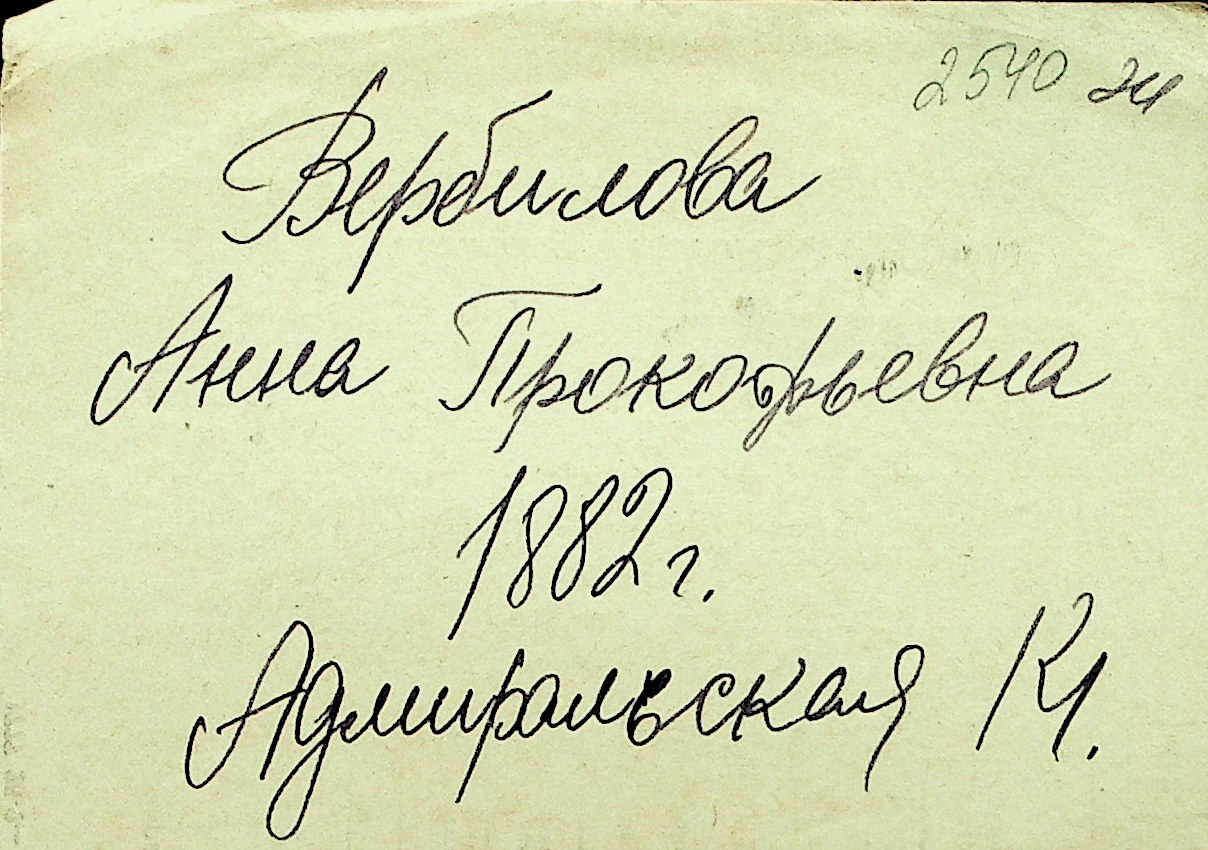 2540 эи
Вербилова
Анна Прокофьевна
1882 г.
Адмиральская К1.